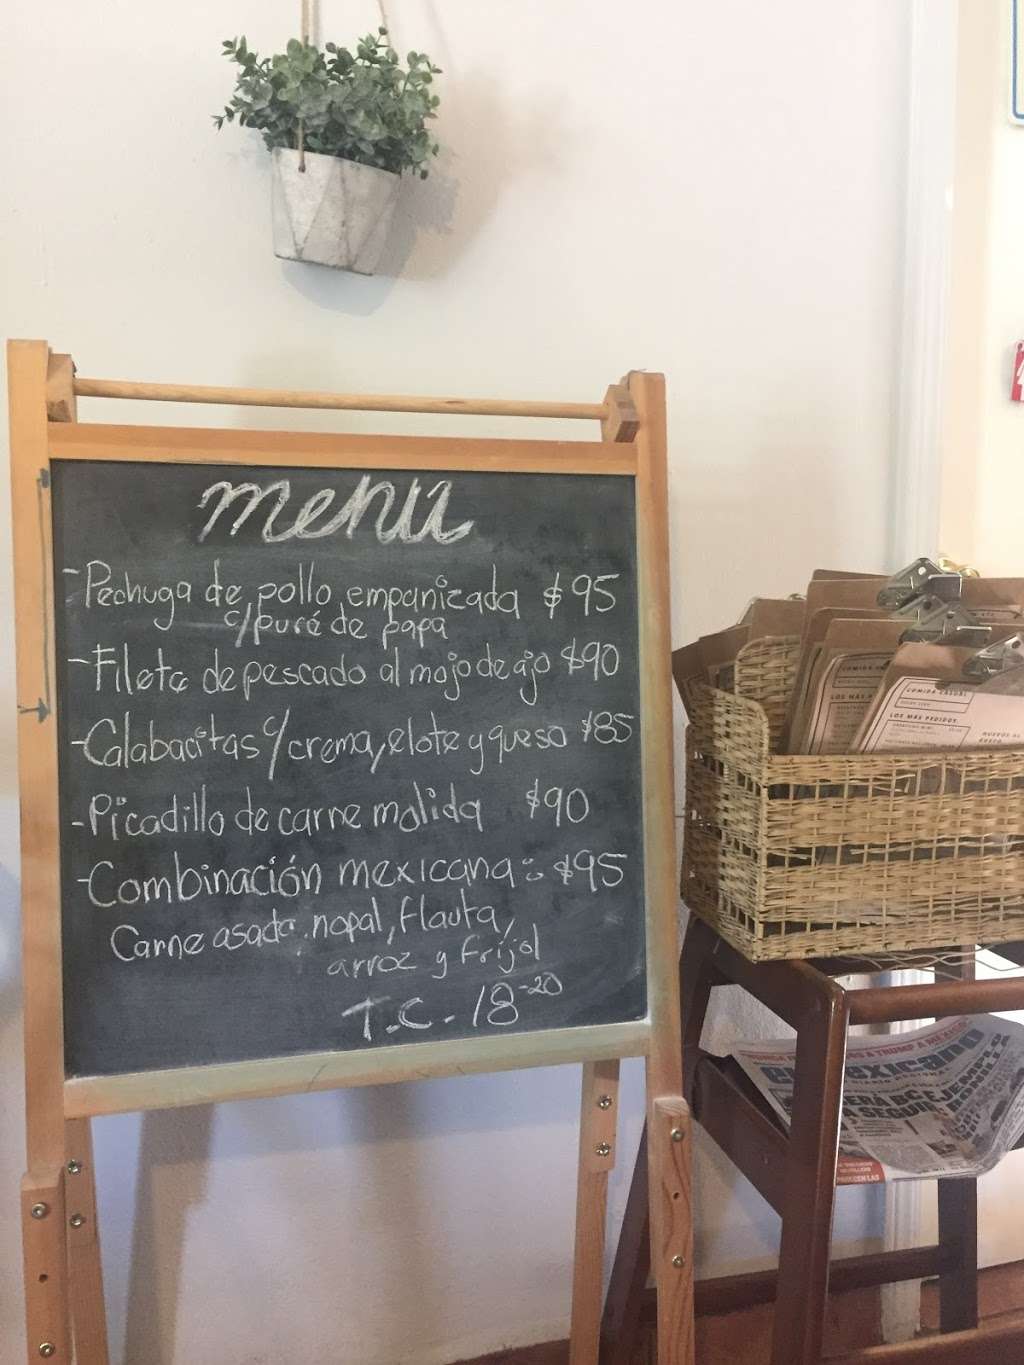 menu
-Pechuga de pollo empanizada $95
c/puré de papa
-Filete de pescado al mojo de ajo $90
-Calabacitas c/crema, elote y queso $85
-Picadillo de carne molida $90
-Combinación mexicana: $95
Carne asada, nopal, flauta,
arroz y frijol
T.C. 18-20
COMIDA CASUAL
LOS MÁS PEDIDOS
COMIDA CASUAL
LOS MÁS PEDIDOS
A TRUMP A MÉXICO
mexicano
SERÁ BC EJEMPLO